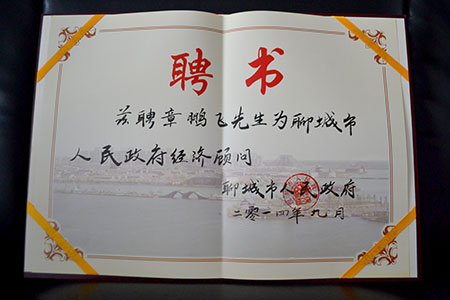 聘书
兹聘章鹏飞先生为聊城市
人民政府经济顾问
聊城市人民政府
二零一四年九月